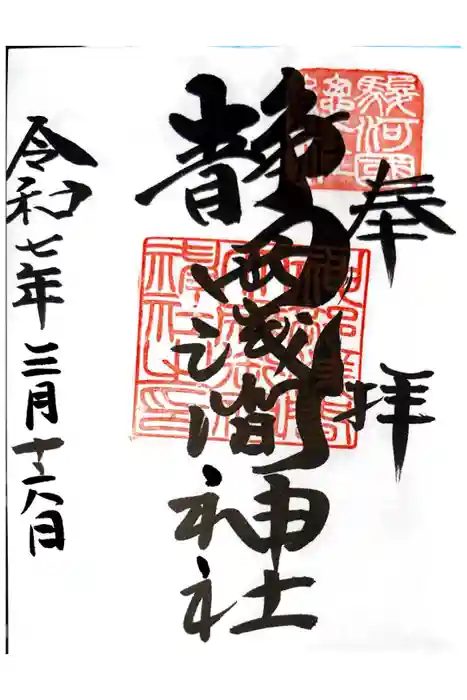 奉拝
駿河國
静岡浅間神社
令和七年三月十六日